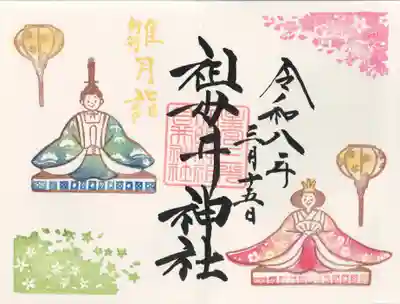 令和八年
三月十五日
祖母井神社
雛月詣